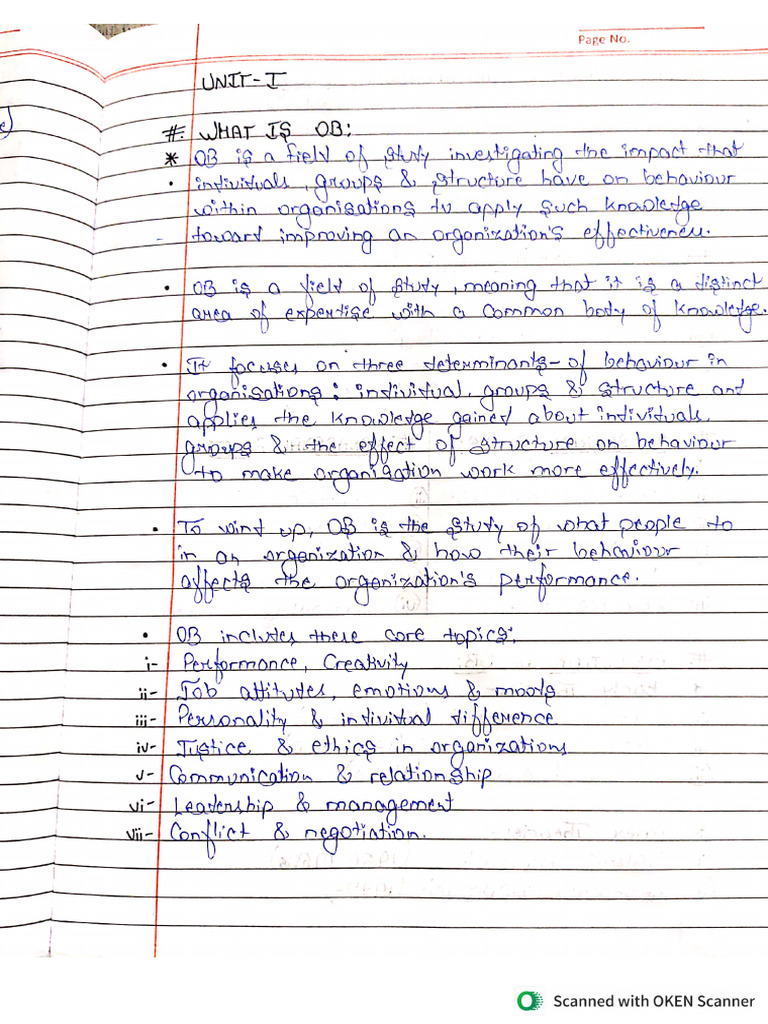 Page No.
UNIT-I
#. WHAT IS OB:
* OB is a field of study investigating the impact that
• individuals, groups & structure have on behaviour
within organisations to apply such knowledge
toward improving an organization's effectiveness.
• OB is a field of study, meaning that it is a distinct
area of expertise with a common body of knowledge.
• It focuses on three determinants of behaviour in
organisations: individual, groups & structure and
applies the knowledge gained about individuals,
groups & the effect of structure on behaviour
to make organisation work more effectively.
• To wind up, OB is the study of what people do
in an organization & how their behaviour
affects the organization's performance.
• OB includes these core topics:
i- Performance, Creativity
ii- Job attitudes, emotions & moods
iii- Personality & individual difference
iv- Justice & ethics in organizations
v- Communication & relationship
vi- Leadership & management
vii- Conflict & negotiation.
Scanned with OKEN Scanner